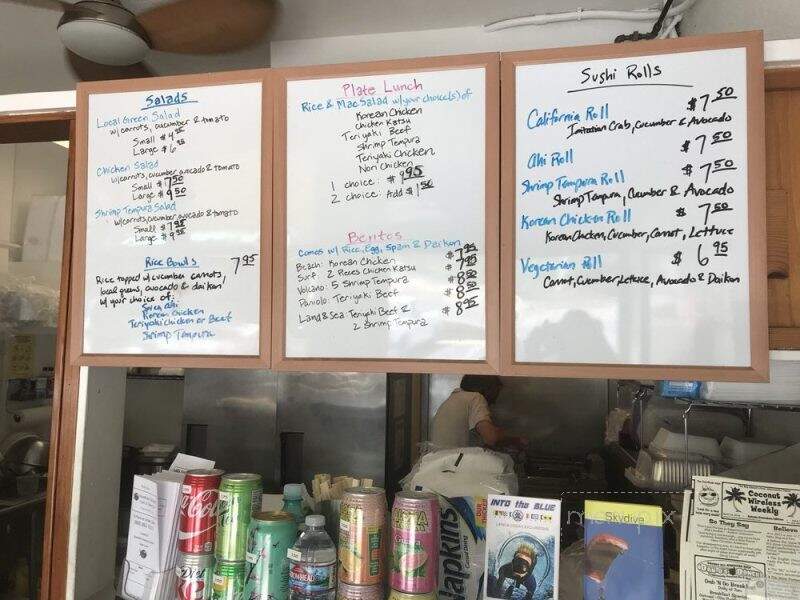 Salads
Local Green Salad
w/ carrots, cucumber & tomato
Small $4
Large $6
Chicken Salad
w/carrots, cucumber, avocado & tomato
Small $7 50
Large $9 50
Shrimp Tempura Salad
w/carrots, cucumber, avocado & tomato
Small $7 95
Large $9 95
Rice Bowls 7 95
Rice topped w/cucumber carrots,
local greens, avocado & daikon,
w/ your choice of:
Spicy Ahi
Korean Chicken
Teriyaki Chicken or Beef
Shrimp Tempura
Plate Lunch
Rice & Mac Salad w/your choice(s) of
Korean Chicken
Chicken Katsu
Teriyaki Beef
Shrimp Tempura
Teriyaki Chicken
Nori Chicken
1 choice: $9 95
2 choice: Add $1 50
Beritos
Comes w/ Rice, Egg, Spam & Daikon
Beach: Korean Chicken $7 95
Surf: 2 Pieces Chicken Katsu $7 95
Volcano: 5 Shrimp Tempura $8 50
Paniolo: Teriyaki Beef $8 50
Land & Sea: Teriyaki Beef & $8 95
2 Shrimp Tempura
Sushi Rolls
California Roll $7 50
Imitation Crab, Cucumber & Avocado
Ahi Roll $7 50
Shrimp Tempura Roll $7 50
Shrimp Tempura, Cucumber & Avocado
Korean Chicken Roll $7 50
Korean Chicken, Cucumber, Carrot, Lettuce
Vegetarian Roll $6 95
Carrot, Cucumber, Lettuce, Avocado & Daikon
Coca-Cola
Diet
Napkins
INTO the BLUE
Skydive
Coconut
Wireless
Weekly
So They Say